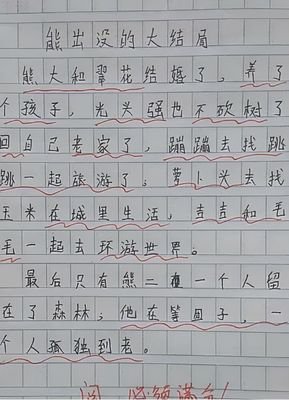 熊出没的大结局
熊大和翠花结婚了,养了
个孩子,光头强也不砍树了
回自己老家了,蹦蹦去找跳
跳一起旅游了,萝卜头去找
玉米在城里生活,吉吉和毛
毛一起去环游世界。
最后只有熊二一个人留
在了森林,他在等团子,一
个人孤独到老。
阅 必须满分!